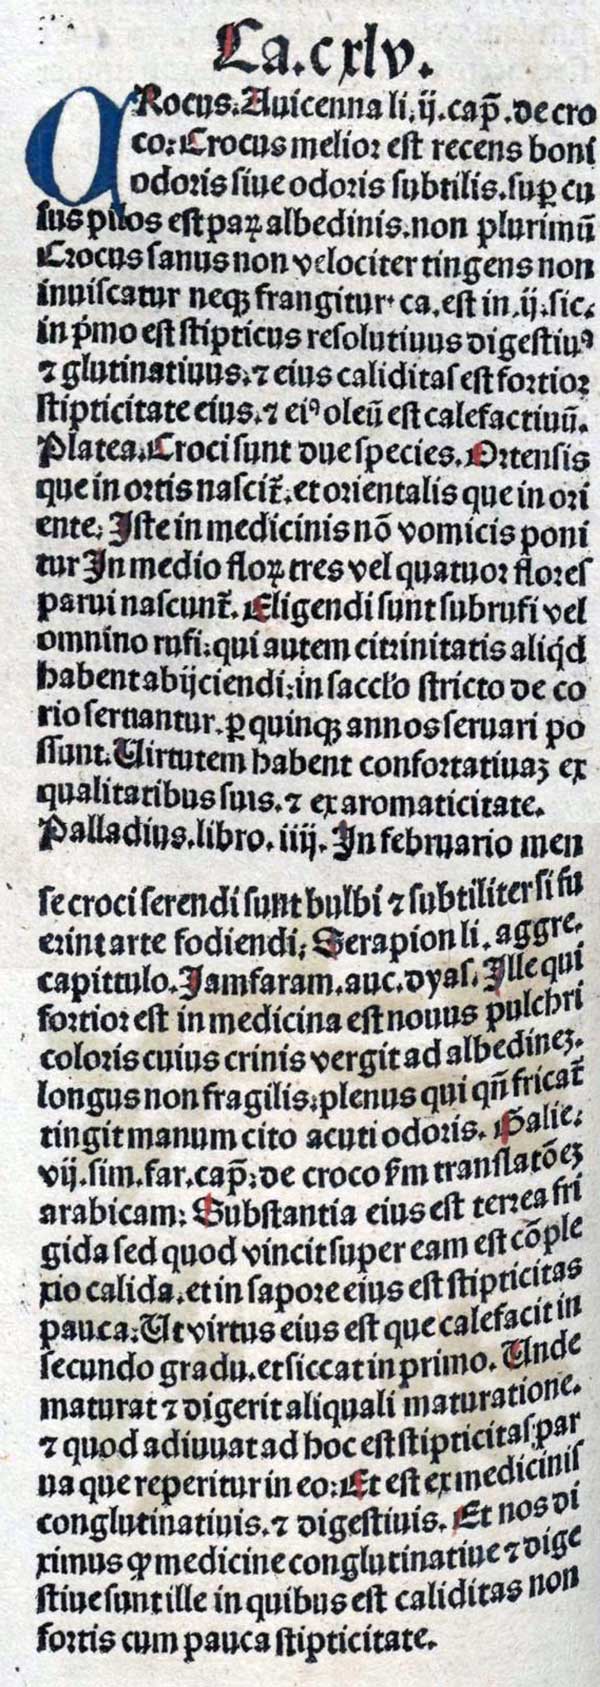 Ca.cxlv.
CRocus.Auicenna li.ij.cap̄.de cro
co:Crocus melior est recens boni
odoris siue odoris subtilis.sup̱ cu
ius pilos est paꝝ albedinis.non plurimū
Crocus sanus non velociter tingens non
inuiscatur neqꝫ frangitur.ca.est in.ij.sic.
in p̄mo est stipticus resolutiuus digestiuꝰ
⁊ glutinatiuus.⁊ eius caliditas est fortior
stipticitate eius.⁊ eiꝰ oleū est calefactiuū.
Platea.Croci sunt due species.Ortensis
que in ortis nascit̄.et orientalis que in ori
ente.Iste in medicinis nō vomicis poni
tur In medio floꝝ tres vel quatuor flores
parui nascunt̄.Eligendi sunt subrufi vel
omnino rufi:qui autem citrinitatis aliqd̓
habent abijciendi:in saccl̓o stricto de co
rio seruantur.ꝑ quinqꝫ annos seruari po
ssunt.Uirtutem habent confortatiuaꝫ ex
qualitatibus suis.⁊ ex aromaticitate.
Palladius.libro.iiij.In februario men
se croci serendi sunt bulbi ⁊ subtiliter si fu
erint arte fodiendi:Serapion li.aggre.
capittulo.Iamfaram.auc.dyas.Ille qui
fortior est in medicina est nouus pulchri
coloris cuius crinis vergit ad albedineꝫ.
longus non fragilis:plenus qui qn̄ fricat̄
tingit manum cito acuti odoris.Galie:
vij.sim.far.cap̄:de croco fm translatōeꝫ
arabicam:Substantia eius est terrea fri
gida sed quod vincit super eam est cōple
xio calida.et in sapore eius est stipticitas
pauca:Ut virtus eius est que calefacit in
secundo gradu.et siccat in primo.Unde
maturat ⁊ digerit aliquali maturatione.
⁊ quod adiuuat ad hoc est stipticitas par
ua que reperitur in eo:Et est ex medicinis
conglutinatiuis.⁊ digestiuis.Et nos di
ximus ꝙ medicine conglutinatiue ⁊ dige
stiue sunt ille in quibus est caliditas non
fortis cum pauca stipticitate.